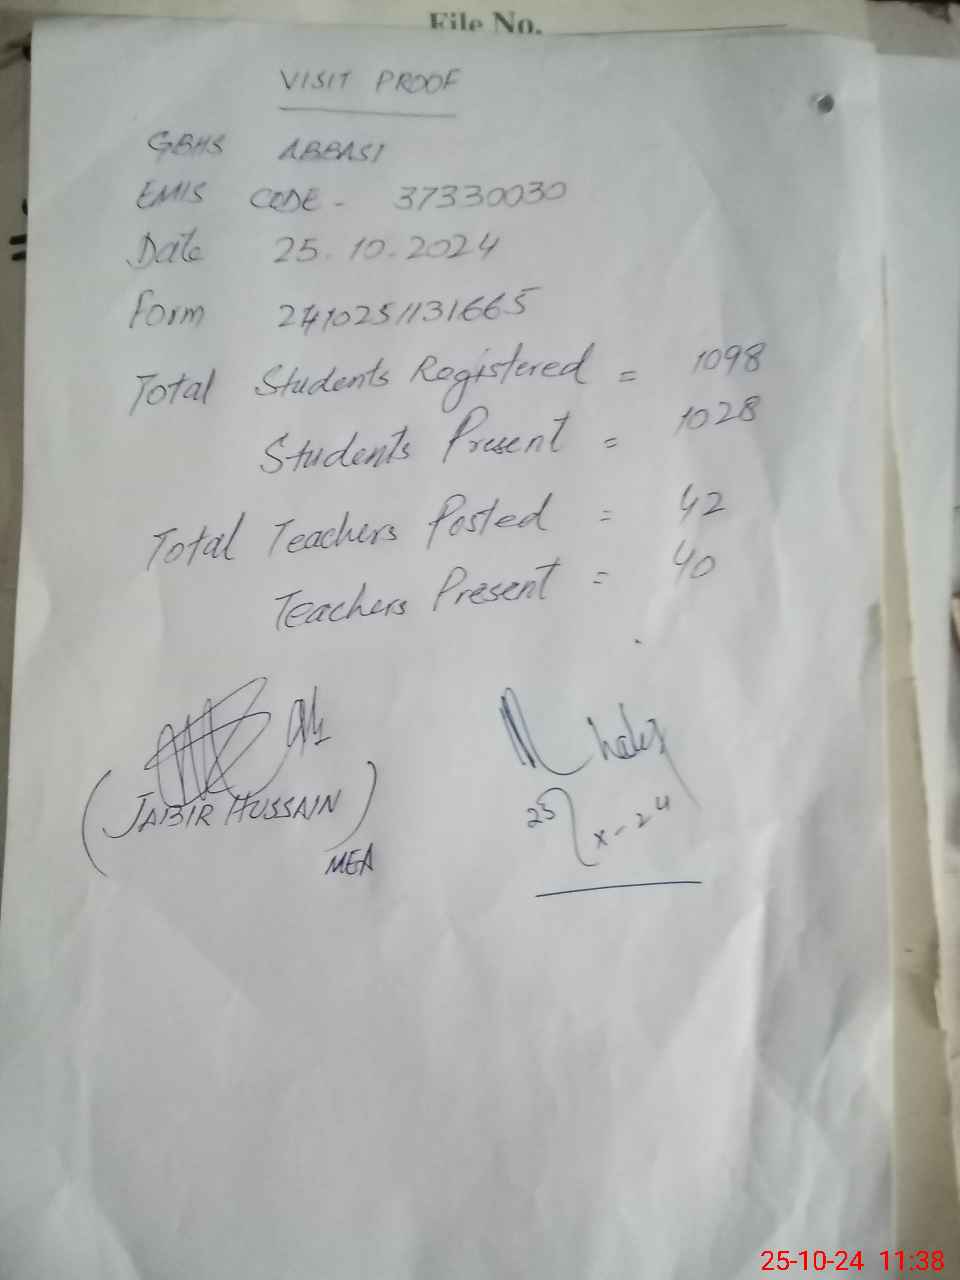 File No.
VISIT PROOF
GBHS ABBASI
EMIS CODE - 37330030
Date 25.10.2024
Form 2410251131665
Total Students Registered = 1098
Students Present = 1028
Total Teachers Posted = 42
Teachers Present = 40
(JABIR HUSSAIN)
MEA
25/x-24
25-10-24 11:38